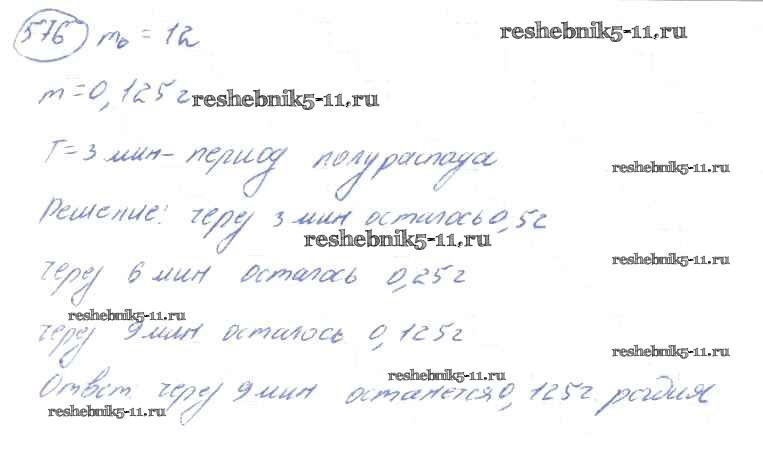 576 m₀ = 1г reshebnik5-11.ru
m = 0,125г reshebnik5-11.ru
T = 3 мин – период полураспада reshebnik5-11.ru
Решение: через 3 мин осталось 0,5г
reshebnik5-11.ru
через 6 мин осталось 0,25г reshebnik5-11.ru
reshebnik5-11.ru
через 9 мин осталось 0,125г reshebnik5-11.ru
reshebnik5-11.ru
Ответ: через 9 мин останется 0,125г. родия
reshebnik5-11.ru